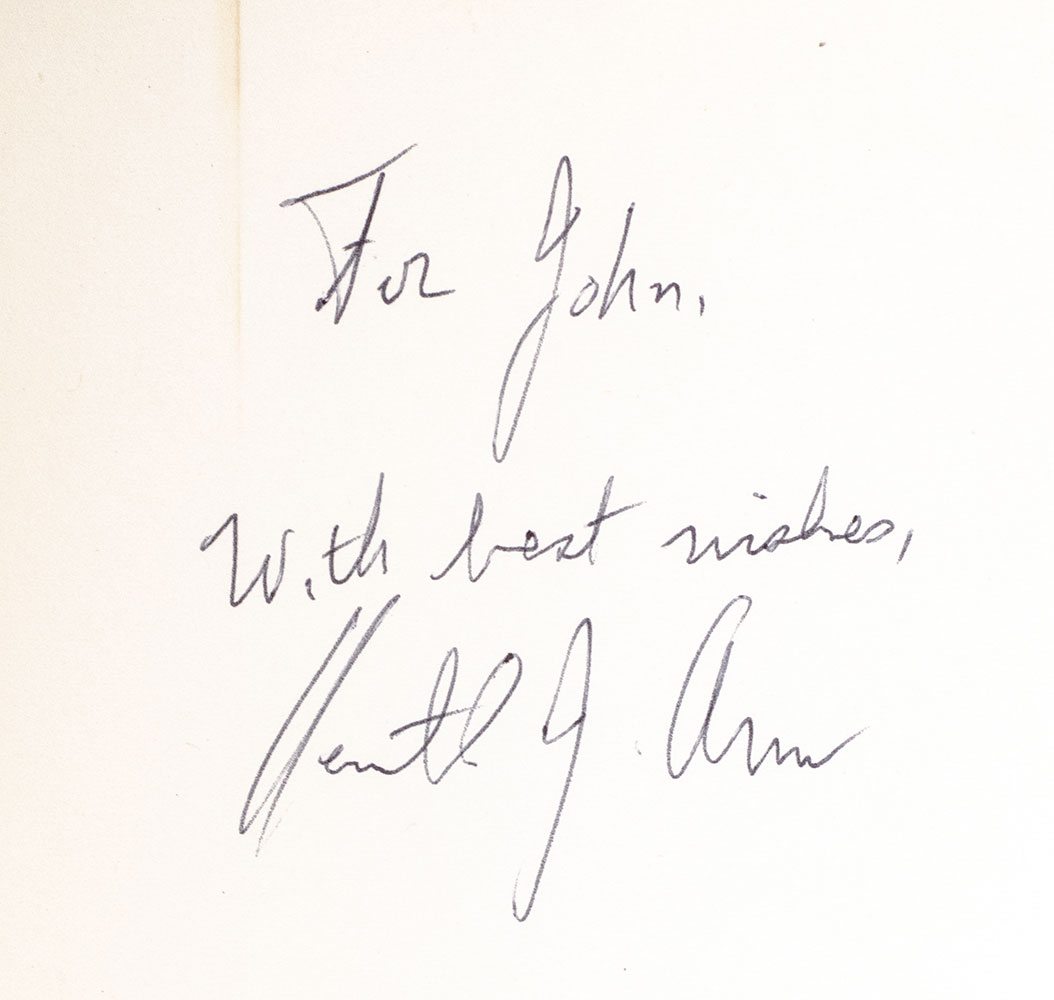 For John,
With best wishes,
Kenneth J. Arrow